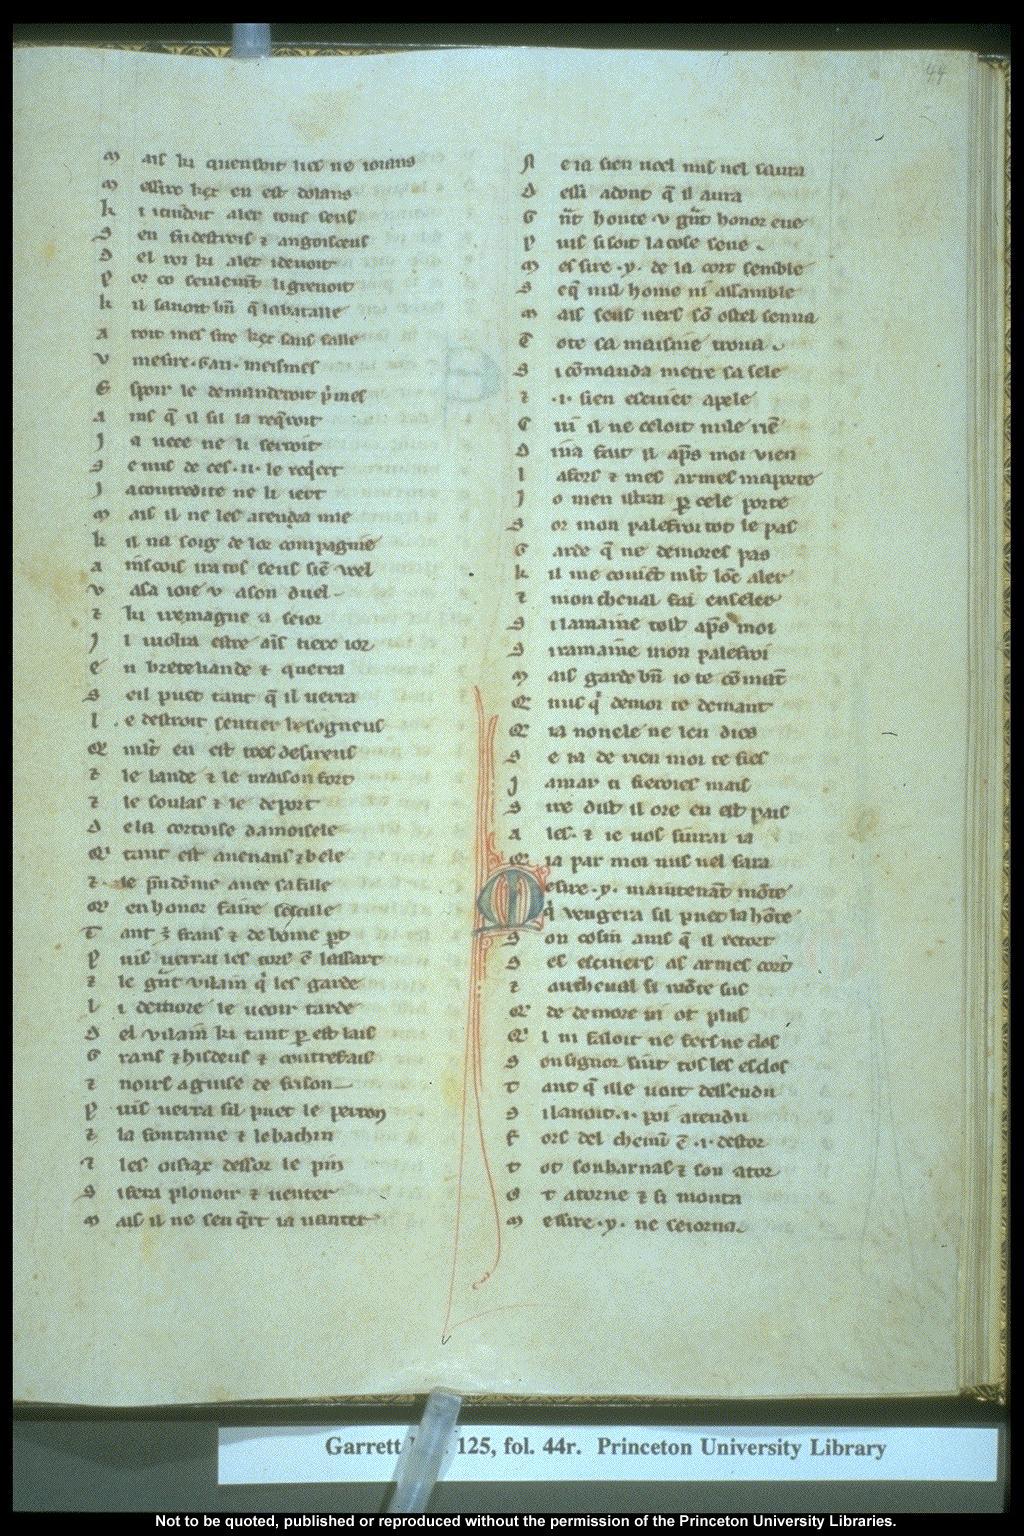 44
M ais ki quensoit liez ne ioians
M essire kex en est dolans
K i
S en destrois & angoisceus
D el roi ki aler
P or co seulemt
K il sauoit bn q̃ la bataille
A roit mes sire kex sans faille
V mesire · Gau · meismes
E spoir le demanderoit p̃mes
A ins q̃ il sil la reqͥroit
J a ueee ne li seroit
S e nus de ces · ii · le reqͥert
J a contredite ne li iert
M ais il ne les atendra mie
K il na soig de lor compagnie
A ins sels siẽ vuel
V a sa ioie v a son duel
& ki remagne a seior
J l uiolra estre ains tierc ior
E n breceliande & querra
S eil puet tant q̃ il uerra
L e destroit sentier
Q mlt en est
& le lande & le maison fort
& le soulas & le deport
D e la cortoise damoisele
Q tant est auenans & bele
& le pͥudome auec sa fille
Q en honor faire sescille
T ant ẽ frans & de boine pͣt
P uis uerra les tors ẽ lassart
& le gͣnt vilain qͥ les garde
L i demore le ueoir tarde
D el vilain ki tant p est lais
G rans & hisdeus & contrefais
& noirs a guise de
P uis uerra sil puet le perron
& la fontaine & le bachin
& les oisiax dessor le pin
S i fera plouoir & uenter
M ais il ne sen qͥert ia uanter
N e ia sien uoel nus nel saura
D essi adont q̃ il aura
G nͣt honte v gnͣt honor eue
P uis si soit la cose seue
M es sire · y · de la cort semble
S eq̃ nul home ni assamble
M ais seus uers sõ ostel
T ote sa maisnie troua
S i cõmanda metre sa sele
& · i · sien escuier apele
C ui il ne celoit nule riẽ
D iua fait il apͥs moi vien
L a fors & mes armes maporte
J o men istrai p cele porte
S or mon palefroi tot le pas
G arde q̃ ne demores pas
K il me couiet mlt loic aler
& mon cheual fai enseler
S i lamaine tost apͥs moi
S i ramaine mon palefroi
M ais garde bn io te cõmat̃
Q nus qͥ de moi te demant
Q ia nouele ne len dies
S e ia de rien moi te fies
J a mar ti fieroies mais
S ire dist il ore en est pais
A les · & ie uos siurai ia
Q ia par moi nus nel sara
M esire · y · maintenãt mõte
qͥ vengera sil puet la hõte
S on cosin ains q̃ il retort
S es escuiers as armes cort
& au cheual si mõte sus
Q de demore ni ot plus
Q i ni faloit ne fers ne clos
S on signor siut tos les esclos
T ant q̃ ille uoit dessendu
S i lauoit · i · poi atendu
F ors del chemin ẽ · i · destor
T ot son harnas & son ator
& t atorne & si monta
M essire · y · ne seiorna
Garrett 125, fol. 44r. Princeton University Library
Not to be quoted, published or reproduced without the permission of the Princeton University Libraries.